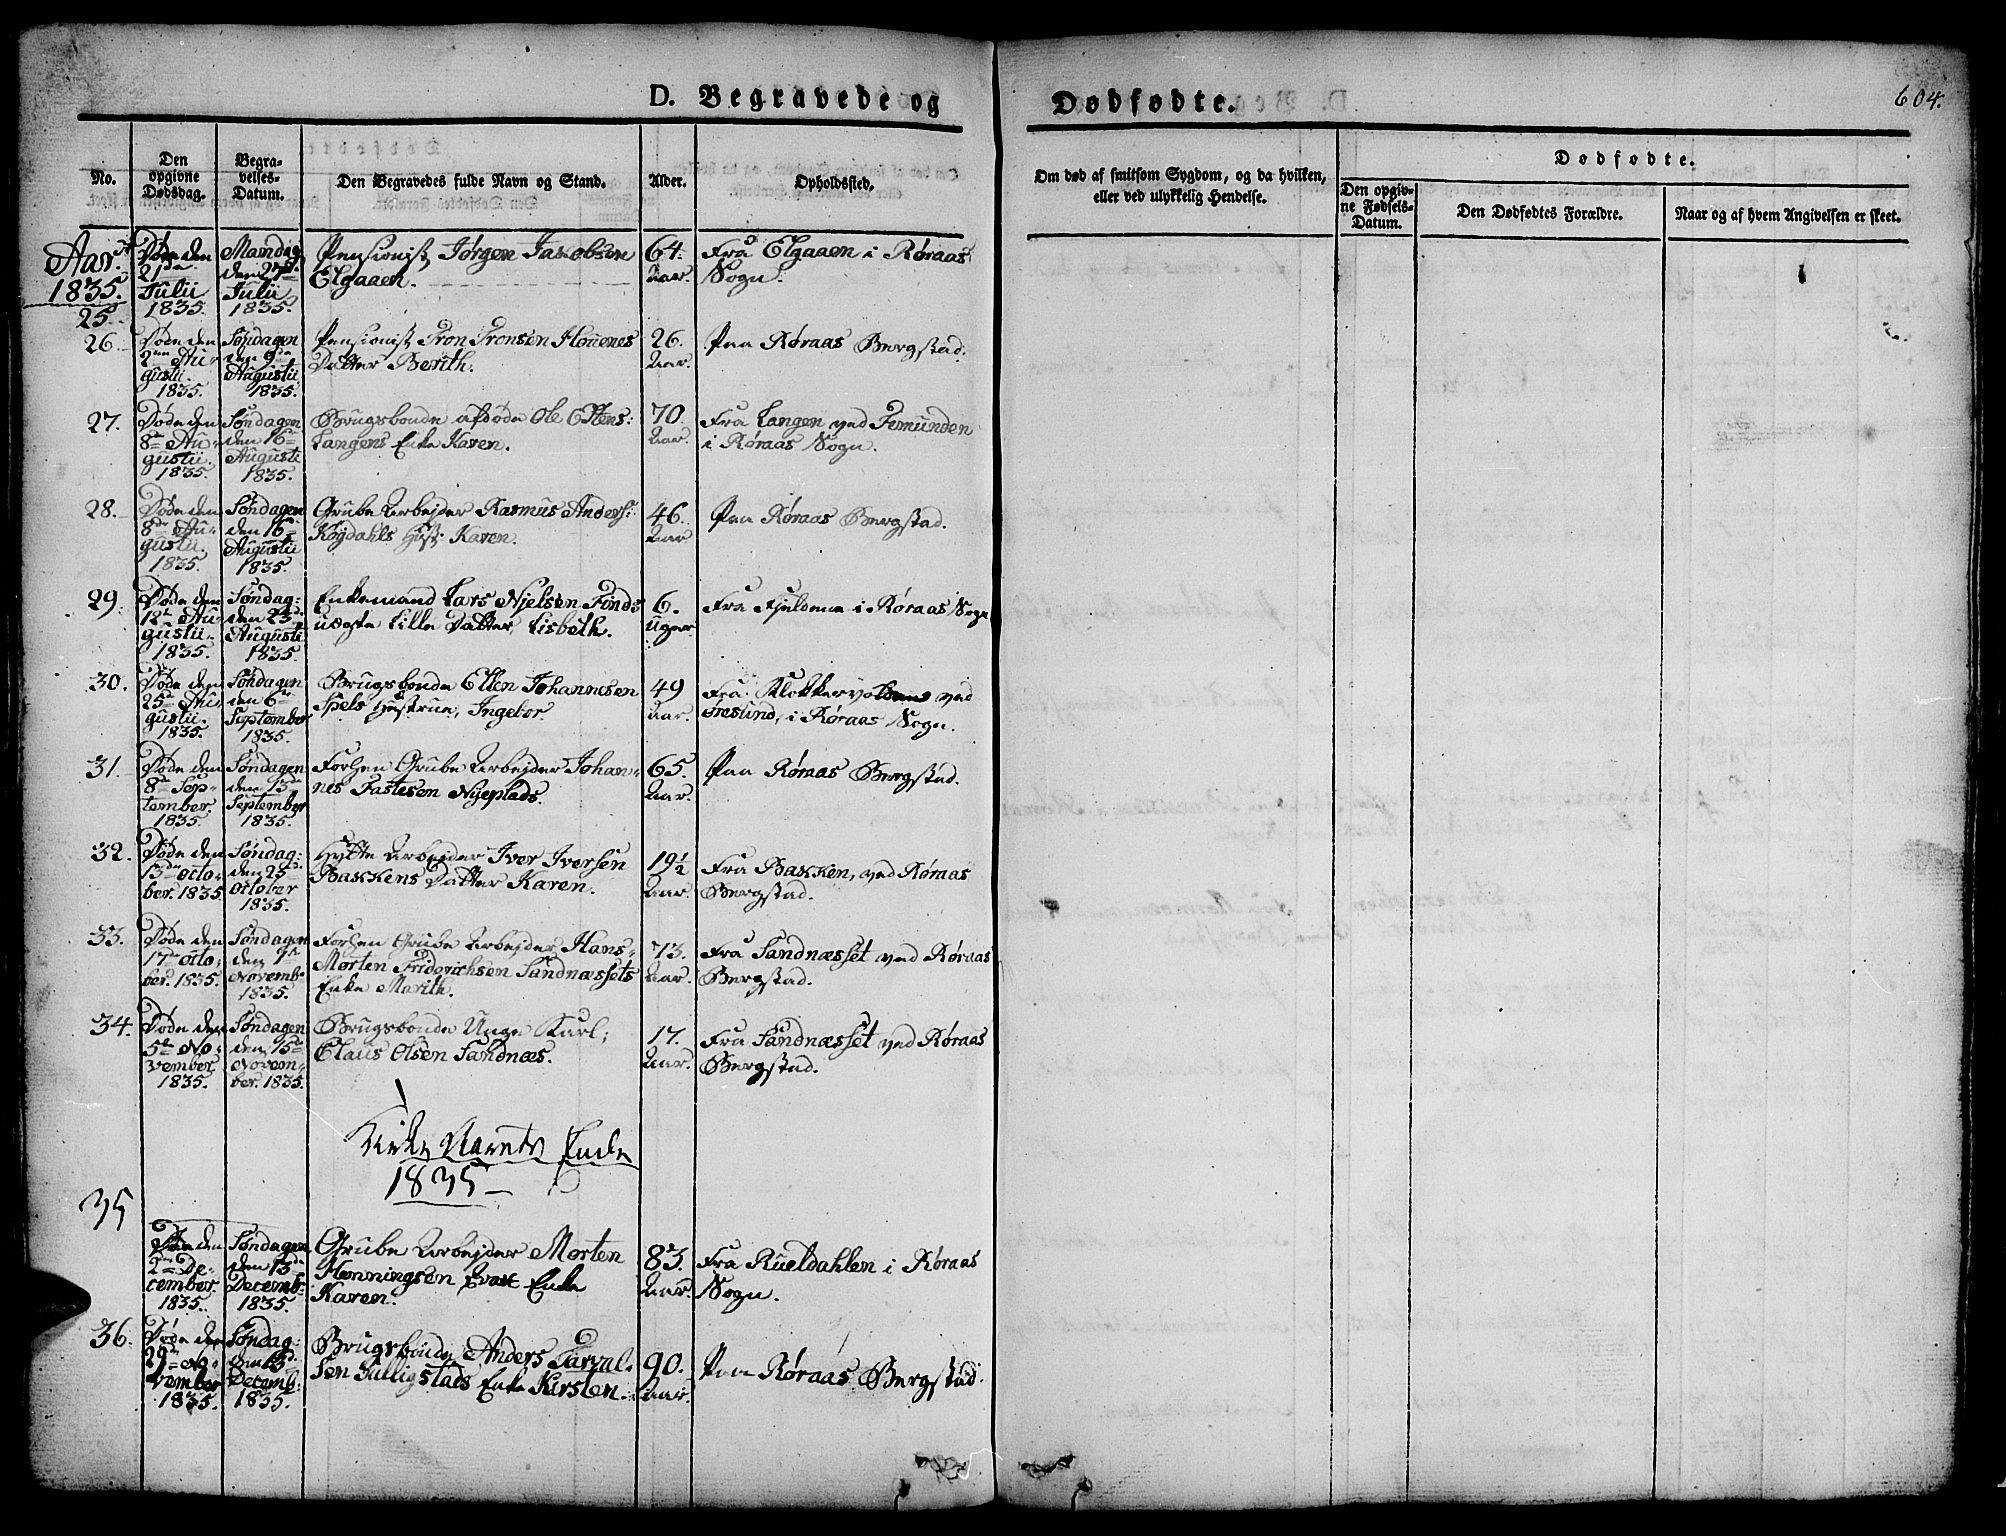 D. Begravede og
Dødfødte.
604.
No.
Den opgivne Dødsdag.
Begravelses-Datum.
Den Begravedes fulde Navn og Stand.
Alder.
Opholdssted.
Om død af smitsom Sygdom, og da hvilken,
eller ved ulykkelig Hendelse.
Dødfødte.
Den opgivne Fødsels-Datum.
Den Dødfødtes Forældre.
Naar og af hvem Angivelsen er skeet.
Aar.
1835.
25.
Døde den
21de
Julii
1835.
Mandag
den 27de
Julii
1835.
Pensionist Jørgen Jacobsen
Elgaaen.
64.
Aar.
Fra Elgaaen i Røraas
Sogn.
26.
Døde den
2den Au-
gustii.
1835.
Søndagen
den 9de
Augustii
1835.
Pensionist Tron Tronsen Houenes
Datter Berith.
26.
Aar.
Paa Røraas Bergstad.
27.
Døde den
8de Au-
gustii.
1835.
Søndagen
den 16de
Augustii
1835.
Brugsbonde afdøde Ole Ostens:
Langens Enke Karen.
70.
Aar.
Fra Langen ved Femunden
i Røraas Sogn.
28.
Døde den
8de Au-
gustii.
1835.
Søndagen
den 16de
Augustii
1835.
Grube Arbejder Rasmus Anders:
Køjdahls Hust: Karen.
46.
Aar
Paa Røraas Bergstad.
29.
Døde den
12te Au-
gustii.
1835.
Søndag:
den 23de
Augustii
1835.
Enkemand Lars Njelsen Finds
uægte lille Datter, Lisbeth.
6.
Uger
Fra Fjeldene i Røraas Sogn
30.
Døde den
25de Au-
gustii.
1835.
Søndagen
den 6te
September
1835.
Brugsbonde Elten Johannesen
Spels Hustrue, Ingebor
49
Aar.
Fra Klokkervolden ved
Øresund, i Røraas Sogn.
31.
Døde den
8de Sep-
tember.
1835.
Søndagen
den 13de
September
1835.
Forhen Grube Arbejder Johan-
nes Fastesen Nyeplads.
65.
Aar.
Paa Røraas Bergstad.
32.
Døde den
13de Octo-
ber. 1835
Søndag:
den 25
October
1835.
Hytte Arbejder Iver Iversen
Bakkens Datter Karen.
19½
Aar.
Fra Bakken, ved Røraas
Bergstad.
33.
Døde den
17de Octo-
ber. 1835.
Søndagen
den 1te
Novemb:
1835.
Forhen Grube Arbejder Hans-
Morten Friderichsen Sandnæssets
Enke Marith.
73.
Aar.
Fra Sandnæsset ved Røraas
Bergstad.
34.
Døde den
5te No-
vember.
1835.
Søndagen
den 15de
Novem-
ber. 1835.
Brugsbonde Unge Karl;
Claus Olsen Sandnæs.
17.
Aar.
Fra Sandnæsset ved Røraas
Bergstad.
Kirke Aarets Ende
1835
35
Døde den
2den De-
cember.
1835.
Søndagen
den 13de
Decemb:
1835.
Grube Arbejder Morten
Henningsen Enke
Karen.
83.
Aar.
Fra Rueldahlen i Røraas
Sogn.
36.
Døde den
29de No-
vember
1835.
Søndag:
den 13de
Decemb:
1835.
Brugsbonde Anders Tarval-
sen Gulligstads Enke Kirsten.
90.
Aar.
Paa Røraas Bergstad.